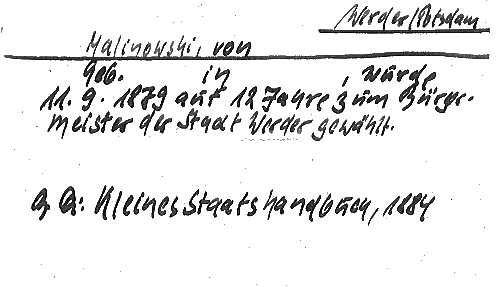 Werder/Potsdam
Malinowski, von
geb. in , wurde
11.9.1879 auf 12 Jahre zum Bürger-
meister der Stadt Werder gewählt.
Q: Kleines Staatshandbuch, 1884